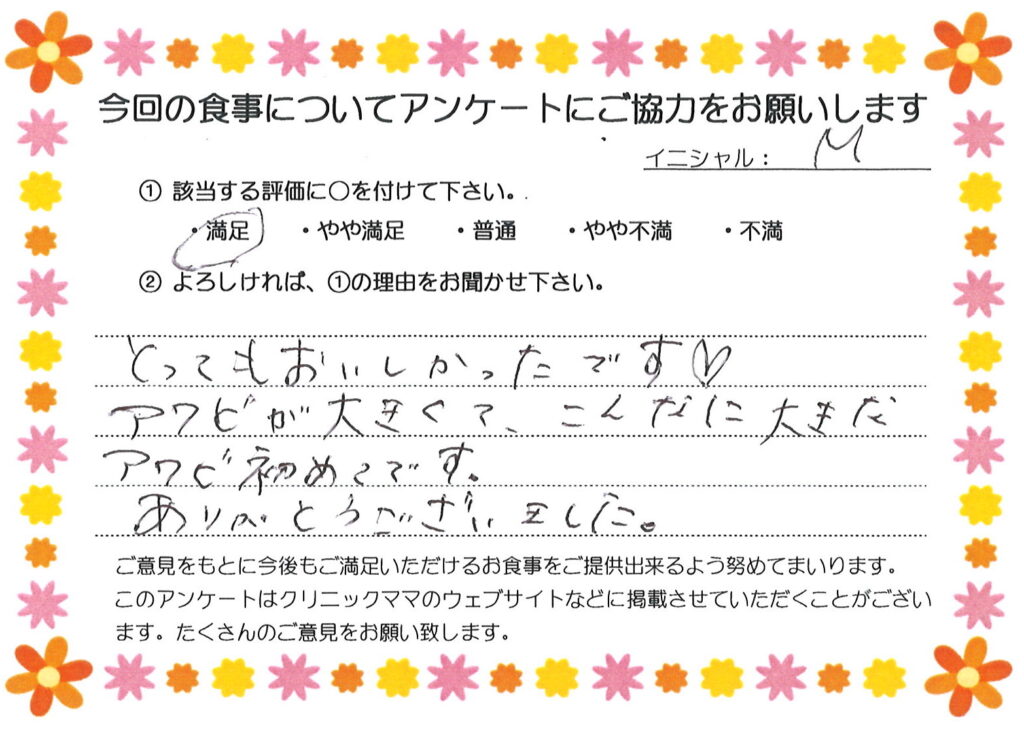 今回の食事についてアンケートにご協力をお願いします
イニシャル： M
① 該当する評価に〇を付けて下さい。
・満足 ・やや満足 ・普通 ・やや不満 ・不満
② よろしければ、①の理由をお聞かせ下さい。
とってもおいしかったです♡
アワビが大きくて、こんなに大きな
アワビ初めてです。
ありがとうございました。
ご意見をもとに今後もご満足いただけるお食事をご提供出来るよう努めてまいります。
このアンケートはクリニックママのウェブサイトなどに掲載させていただくことがござい
ます。たくさんのご意見をお願い致します。